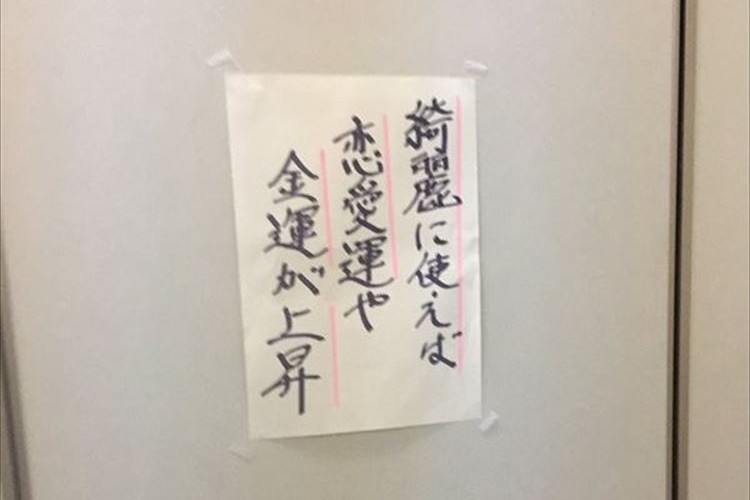 綺麗に使えば
恋愛運や
金運が上昇